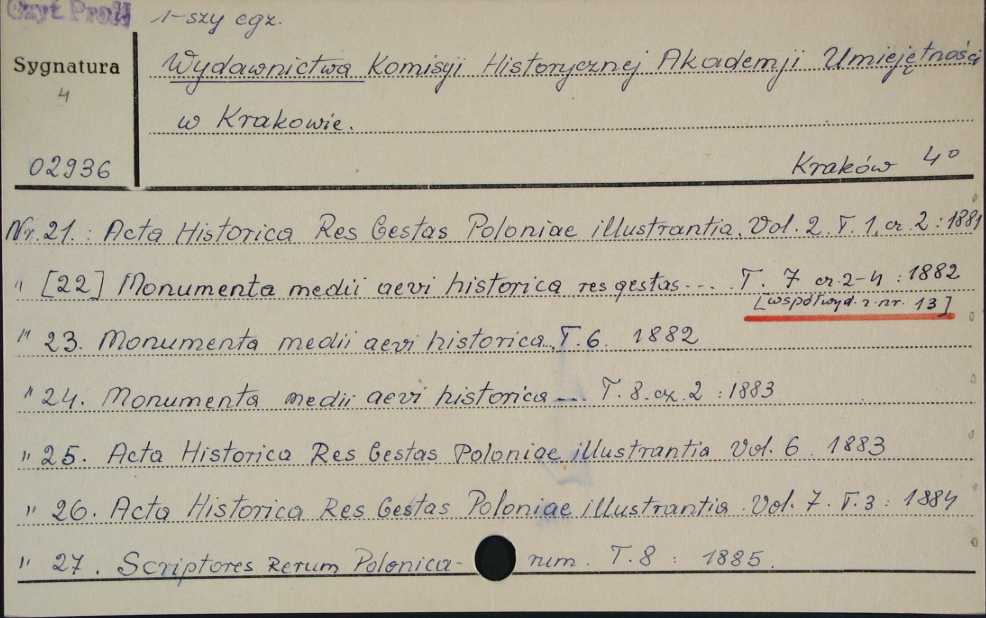 Czyt. Prof.
1-szy egz.
Sygnatura
4
02936
Wydawnictwa Komisyi Historycznej Akademji Umiejętności
w Krakowie.
Kraków 4º
Nr. 21. : Acta Historica Res Gestas Poloniae illustrantia. Vol. 2. T. 1, cz. 2 : 1881
" [22] Monumenta medii aevi historica res gestas... T. 7 cz. 2-4 : 1882
[współwyd. z nr. 13]
" 23. Monumenta medii aevi historica. T. 6. 1882
" 24. Monumenta medii aevi historica ... T. 8. cz. 2 : 1883
" 25. Acta Historica Res Gestas Poloniae illustrantia Vol. 6. 1883
" 26. Acta Historica Res Gestas Poloniae illustrantia. Vol. 7. T. 3 : 1884
" 27. Scriptores Rerum Polonica- rum. T. 8 : 1885.